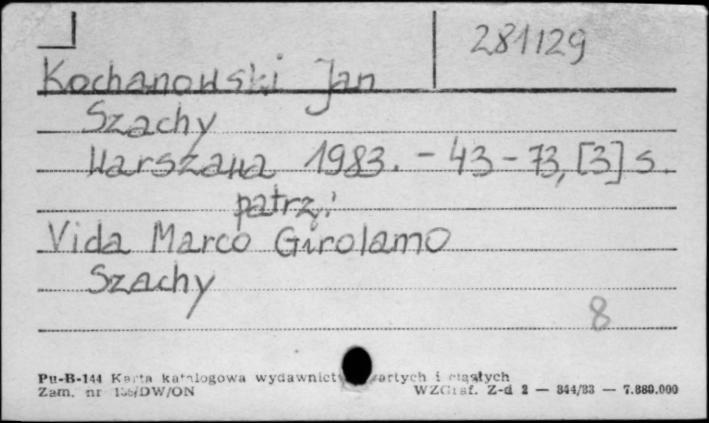 281129
Kochanowski Jan
Szachy
Warszawa 1983. - 43-73, [3] s.
patrz:
Vida Marco Girolamo
Szachy
8
Pu-B-144 Karta katalogowa wydawnictw zwartych i ciągłych
Zam. nr /DW/ON WZGraf. Z-d 2 — 344/83 — 7.880.000